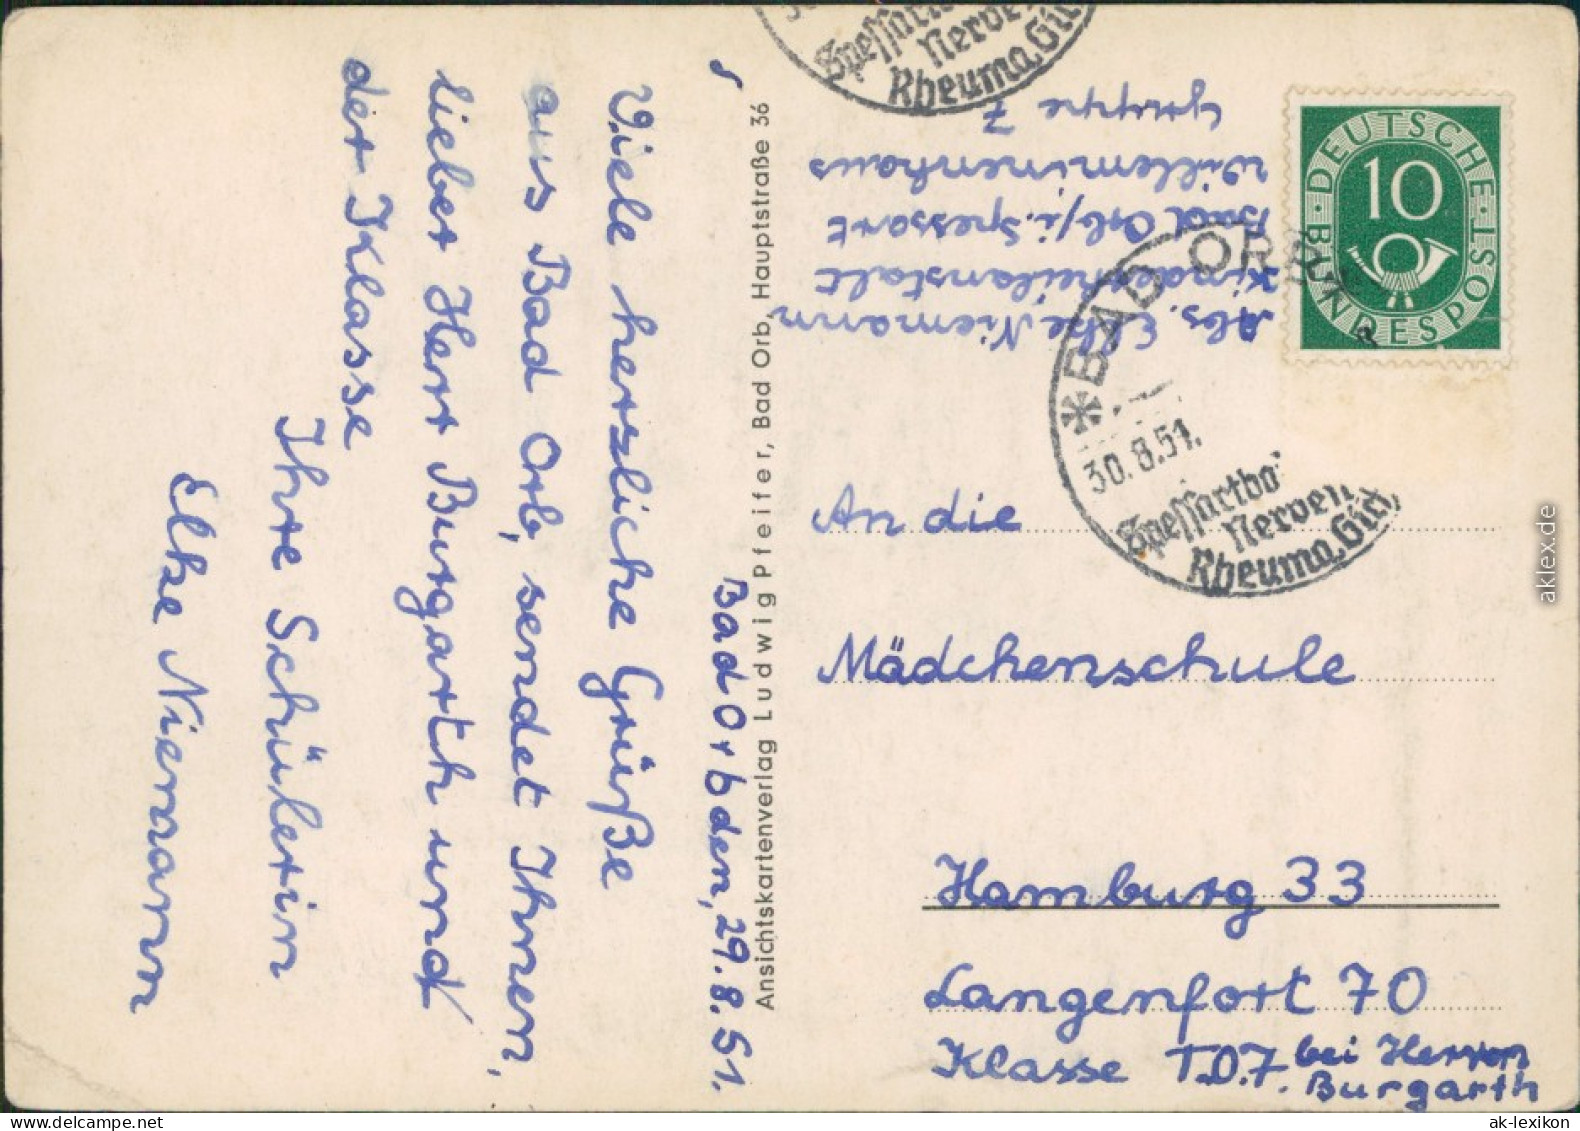 Bad Orb den, 29.8.51.
Viele herzliche Grüße
aus Bad Orb, sendet Ihnen,
lieber Herr Burgarth und
der Klasse
Ihre Schülerin
Elke Niemann
Ansichtskartenverlag Ludwig Pfeifer, Bad Orb, Hauptstraße 36
Abs. Elke Niemann
Kinderheilanstalt
Bad Orb/i. Spessart
Willeminenhaus
Gruppe 7
Spessart
Nerven
Rheuma, Gich
DEUTSCHE BUNDESPOST
10
BAD ORB
30.8.51.
Spessartbo
Nerven
Rheuma, Gich
An die
Mädchenschule
Hamburg 33
Langenfort 70
Klasse T.O.7. bei Herrn
Burgarth
aklex.de
www.delcampe.net
ak-lexikon